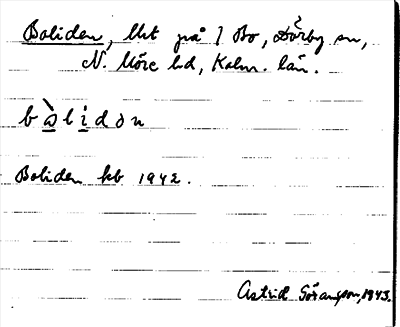 Boliden, lht på 1 Bo, Dörby sn,
N. Möre hd, Kalm. län.
bòlidən
Boliden kb 1942.
Astrid Göransson, 1943.